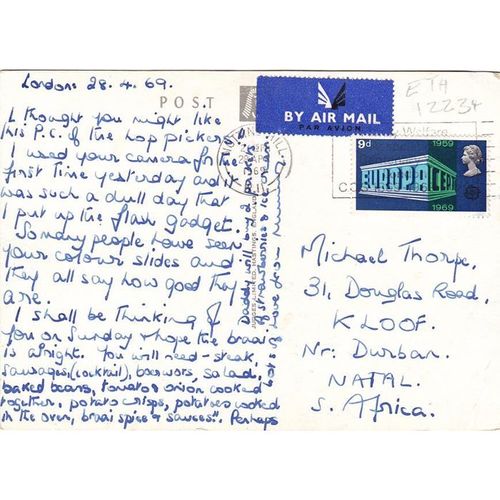 London: 28.4.69.
POST
I thought you might like
this P.C. of the hop pickers
I used your camera for the
first time yesterday and it
was such a dull day that
I put up the flash gadget.
Sunday people have seen
your colour slides and
they all say how good they
are.
I shall be thinking of
you on Sunday & hope the braai
is alright. You will need - steak,
sausages, (cocktail), boerwors, salad,
baked beans, tomato & onion cooked
together, potato crisps, potatoes cooked
in the oven, braai spice & sauces". Perhaps
Daddy will buy a
strawberries
love from Mummy
JUDGES LIMITED, HASTINGS, ENGLAND
BY AIR MAIL
PAR AVION
ETA
12234
9d
1969
EUROPA CEPT
1969
Michael Thorpe,
31, Douglas Road,
KLOOF.
Nr: Durban.
NATAL.
S. Africa.